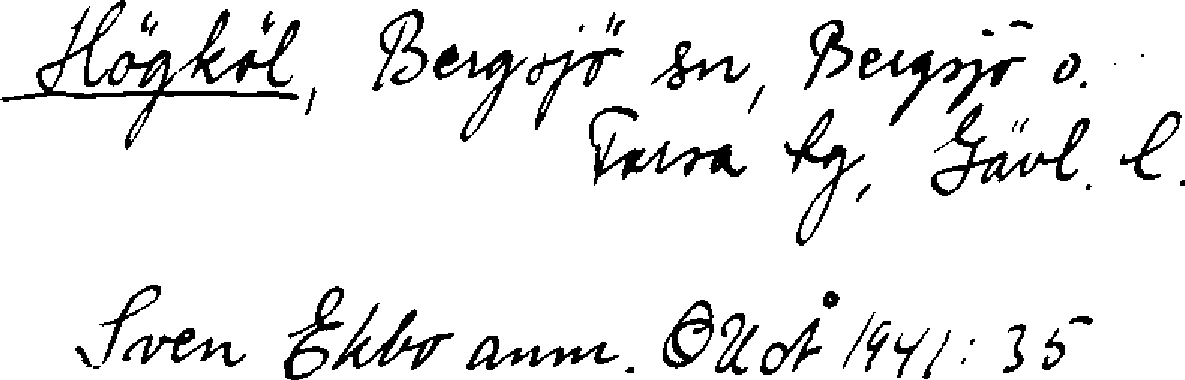 Högköl, Bergsjö sn, Bergsjö o.
Forsa tg, Gävl. l.
Sven Ekbo anm. OUÅ 1941: 35